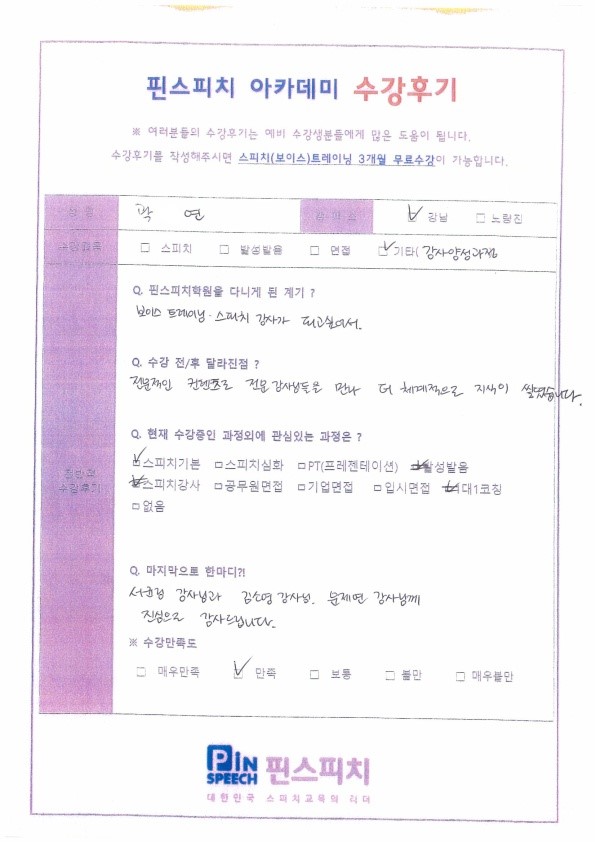 핀스피치 아카데미 수강후기
※ 여러분들의 수강후기는 예비 수강생분들에게 많은 도움이 됩니다.
수강후기를 작성해주시면 스피치(보이스)트레이닝 3개월 무료수강이 가능합니다.
성 명 박 연 ☑ 강남 □ 노량진
□ 스피치 □ 발성발음 □ 면접 ☑ 기타( 강사양성과정
Q. 핀스피치학원을 다니게 된 계기 ?
보이스 트레이닝·스피치 강사가 되고싶어서.
Q. 수강 전/후 달라진점 ?
전문적인 컨텐츠로 전문강사님들을 만나 더 체계적으로 지식이 쌓였습니다.
Q. 현재 수강중인 과정외에 관심있는 과정은 ?
☑스피치기본 □스피치심화 □PT(프레젠테이션) ☑발성발음
☑스피치강사 □공무원면접 □기업면접 □입시면접 ☑1대1코칭
□없음
전반적
수강후기
Q. 마지막으로 한마디?!
강사님과 김소영 강사님. 문제연 강사님께
진심으로 감사드립니다.
※ 수강만족도
□ 매우만족 ☑ 만족 □ 보통 □ 불만 □ 매우불만
PIN SPEECH 핀스피치
대한민국 스피치교육의 리더